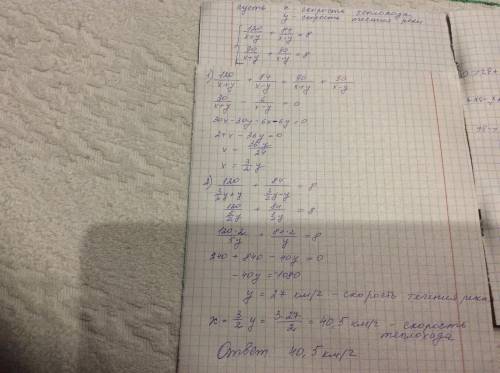 Пусть x - скорость теплохода
y - скорость течения реки
{ 120/(x+y) + 84/(x-y) = 8
{ 90/(x+y) + 90/(x-y) = 8
1) 120/(x+y) + 84/(x-y) = 90/(x+y) + 90/(x-y)
30/(x+y) - 6/(x-y) = 0
30x-30y-6x-6y=0
24x-36y=0
x = 36y/24
x = 3/2 y
2) 120/(3/2y+y) + 84/(3/2y-y) = 8
120/(5/2y) + 84/(1/2y) = 8
120·2/5y + 84·2/y = 8
240 + 840 - 40y = 0
-40y = -1080
y = 27 км/ч - скорость течения реки
x = 3/2 y = 3·27/2 = 40,5 км/ч - скорость
теплохода
Ответ 40,5 км/ч